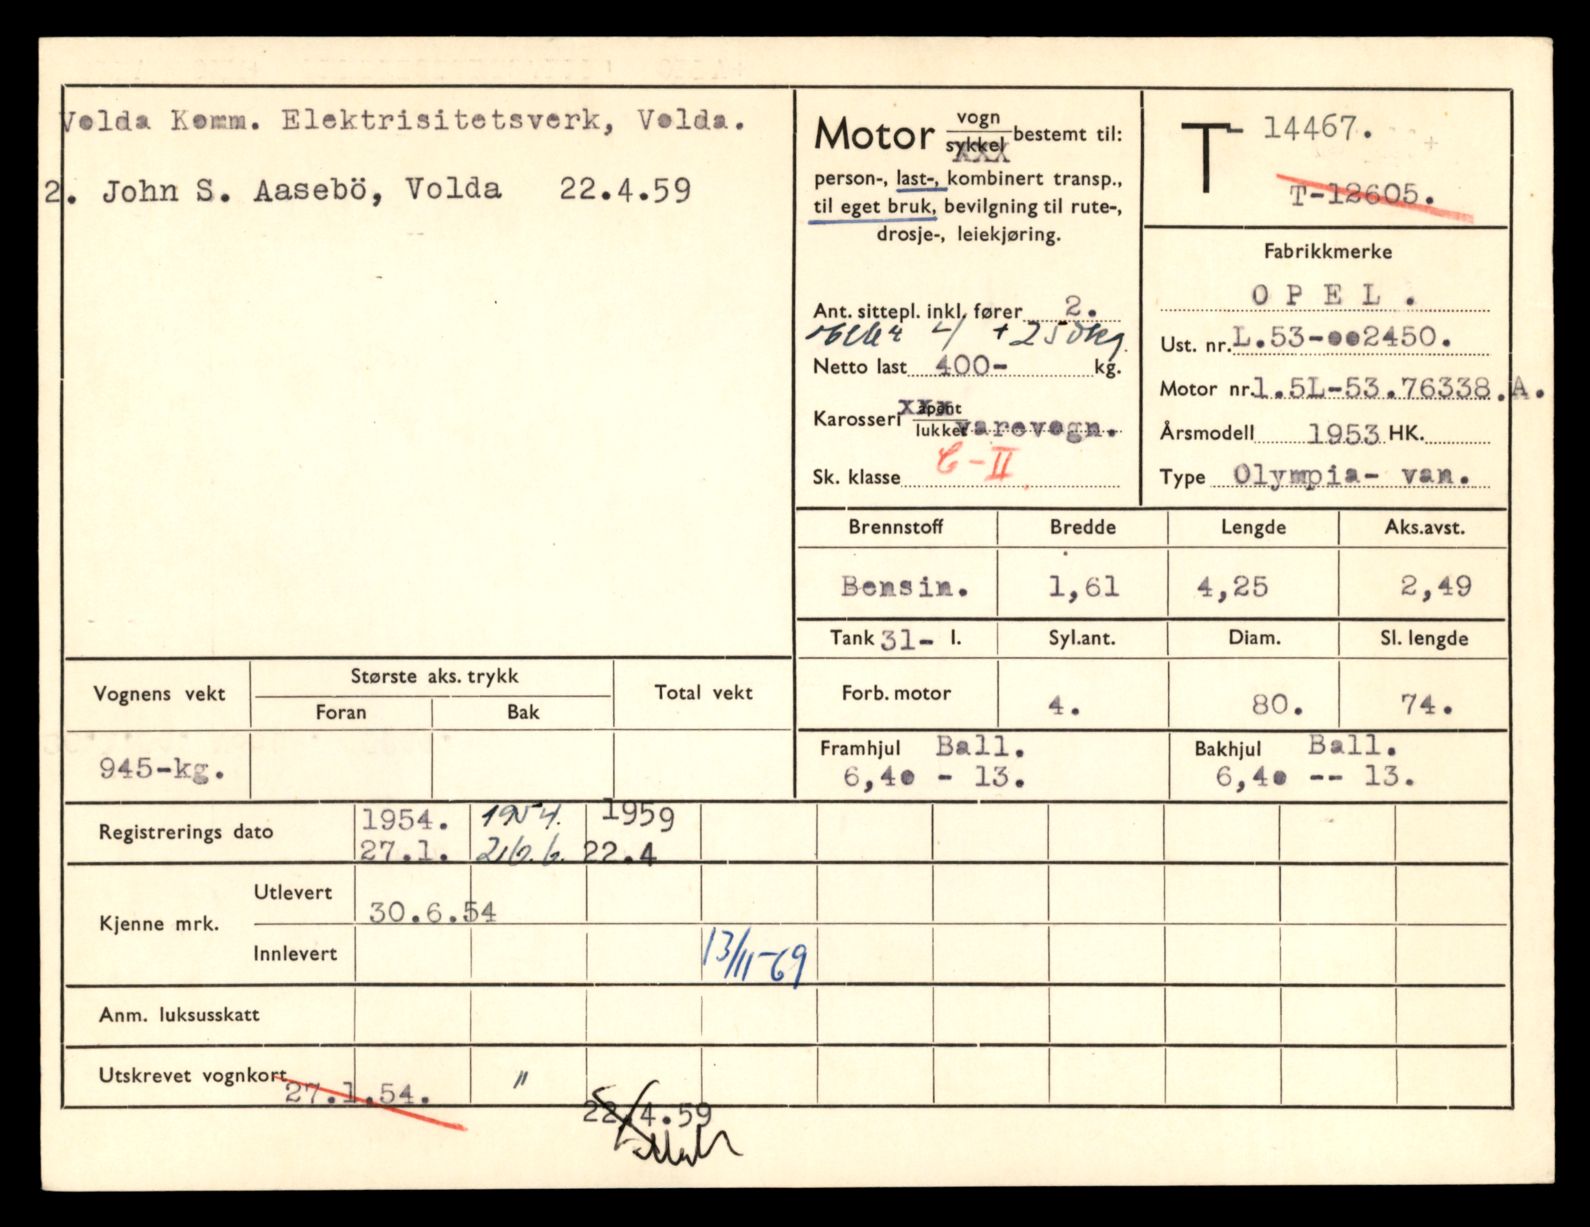 Volda Komm. Elektrisitetsverk, Volda.
2. John S. Aasebö, Volda 22.4.59
Motor vogn sykkel bestemt til:
person-, last-, kombinert transp.,
til eget bruk, bevilgning til rute-,
drosje-, leiekjøring.
Ant. sittepl. inkl. fører 2.
eller 4 + 250kg.
Netto last 400- kg.
Karosseri åpent lukket varevogn.
Sk. klasse C-II
T- 14467.
T-12605.
Fabrikkmerke
OPEL.
Ust. nr. L.53-oo2450.
Motor nr. 1.5L-53.76338.A.
Årsmodell 1953 HK.
Type Olympia- van.
Brennstoff Bredde Lengde Aks.avst.
Bensin. 1,61 4,25 2,49
Tank 31- l. Syl.ant. Diam. Sl. lengde
Forb. motor 4. 80. 74.
Framhjul Ball. Bakhjul Ball.
6,4o - 13. 6,4o -- 13.
Vognens vekt Største aks. trykk Total vekt
Foran Bak
945-kg.
Registrerings dato 1954. 1954. 1959
27.1. 26.6. 22.4
Kjenne mrk. Utlevert 30.6.54
Innlevert 13/11-69
Anm. luksusskatt
Utskrevet vognkort 27.1.54. " 22.4.59